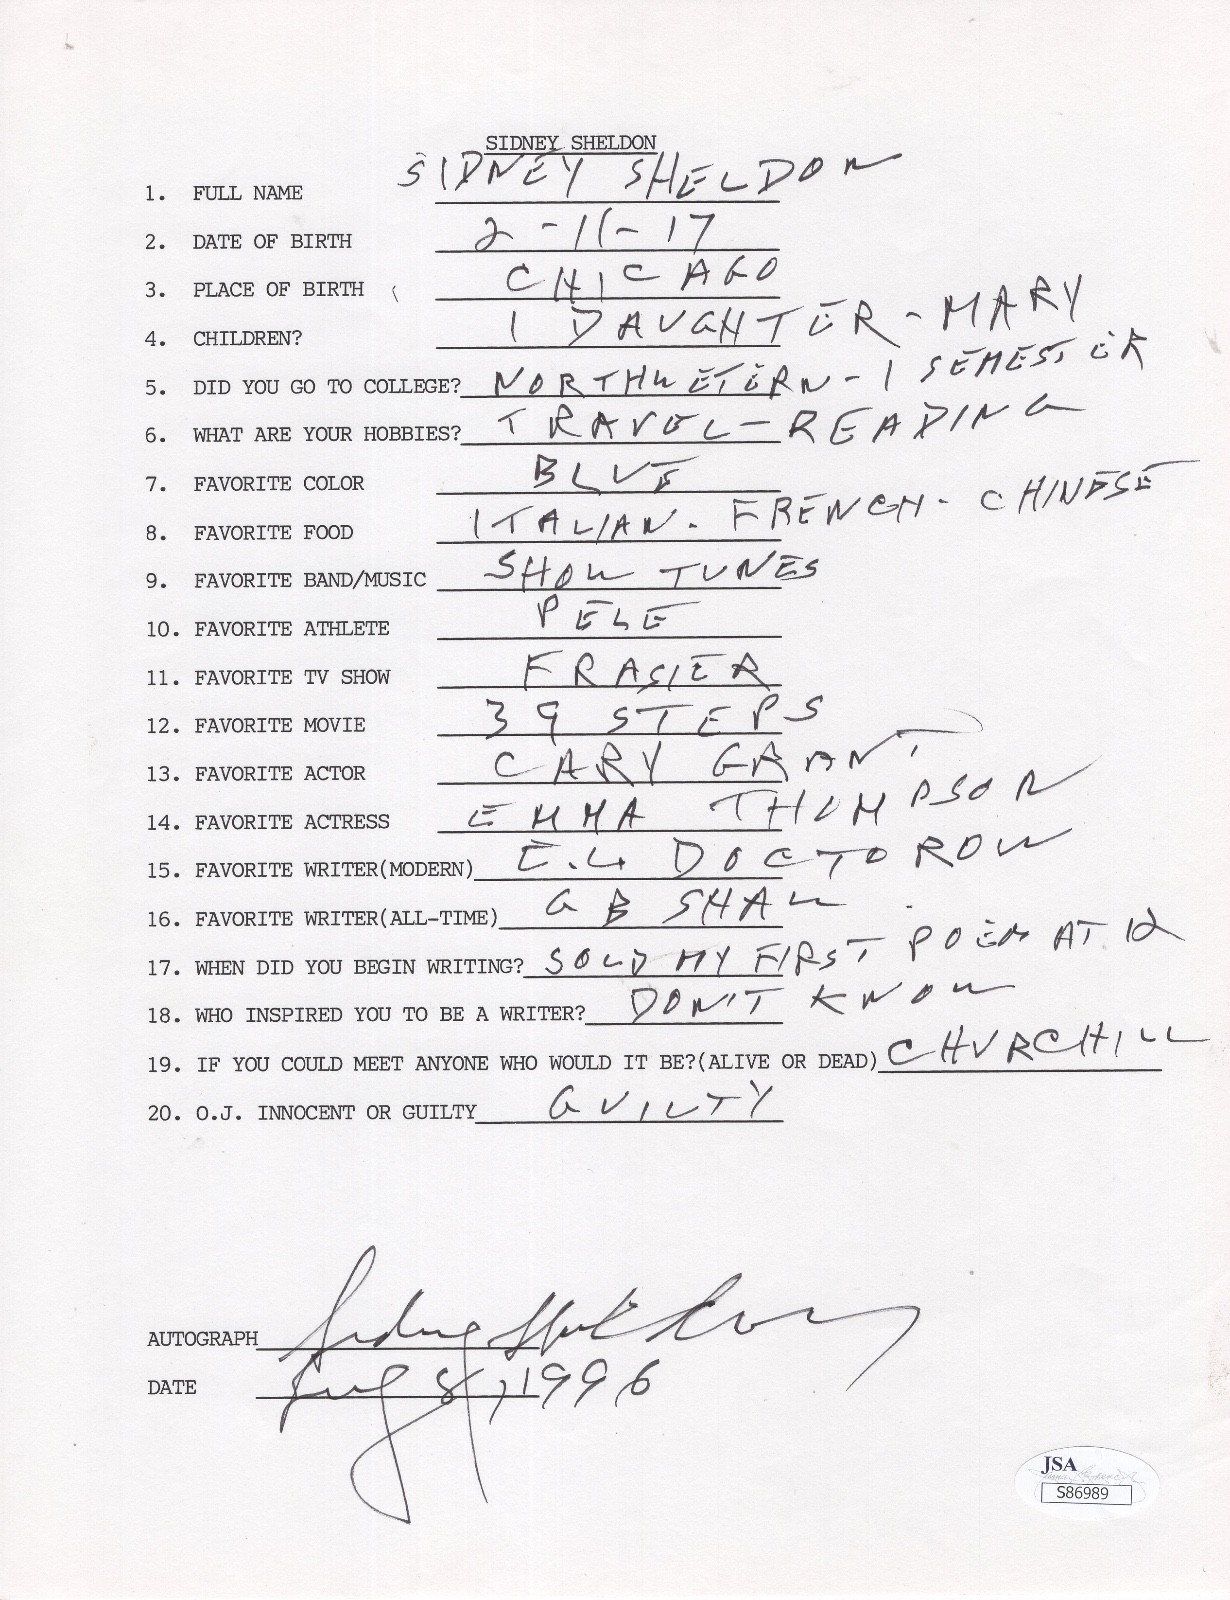 SIDNEY SHELDON
1. FULL NAME SIDNEY SHELDON
2. DATE OF BIRTH 2-11-17
3. PLACE OF BIRTH CHICAGO
4. CHILDREN? 1 DAUGHTER - MARY
5. DID YOU GO TO COLLEGE? NORTHWETERN - 1 SEMESTER
6. WHAT ARE YOUR HOBBIES? TRAVEL - READING
7. FAVORITE COLOR BLUE
8. FAVORITE FOOD ITALIAN - FRENCH - CHINESE
9. FAVORITE BAND/MUSIC SHOW TUNES
10. FAVORITE ATHLETE PELE
11. FAVORITE TV SHOW FRASIER
12. FAVORITE MOVIE 39 STEPS
13. FAVORITE ACTOR CARY GRANT
14. FAVORITE ACTRESS EMMA THOMPSON
15. FAVORITE WRITER(MODERN) E.L DOCTOROW
16. FAVORITE WRITER(ALL-TIME) G B SHAW
17. WHEN DID YOU BEGIN WRITING? SOLD MY FIRST POEM AT 12
18. WHO INSPIRED YOU TO BE A WRITER? DON'T KNOW
19. IF YOU COULD MEET ANYONE WHO WOULD IT BE?(ALIVE OR DEAD) CHURCHILL
20. O.J. INNOCENT OR GUILTY GUILTY
AUTOGRAPH Sidney Sheldon
DATE Aug 8, 1996
JSA
S86989